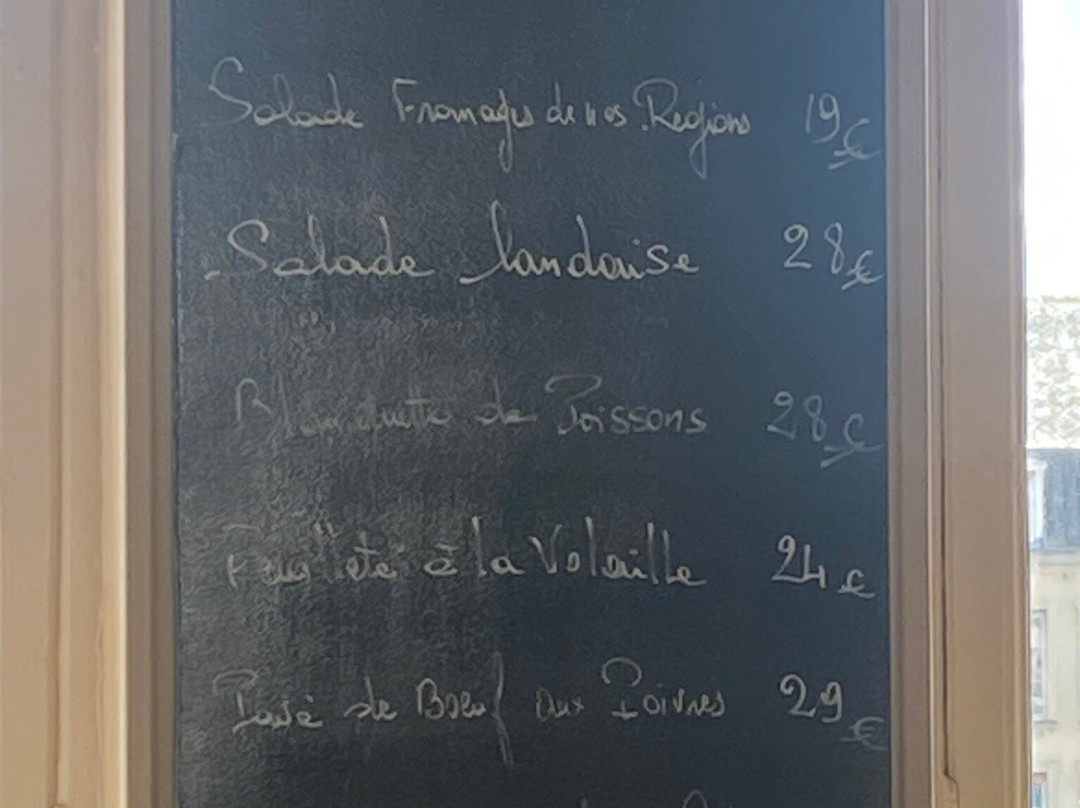 Salade Fromages de nos Regions 19€
Salade landaise 28€
Blanquette de Poissons 28€
Feuilleté à la Volaille 24€
Pavé de Boeuf aux Poivres 29€